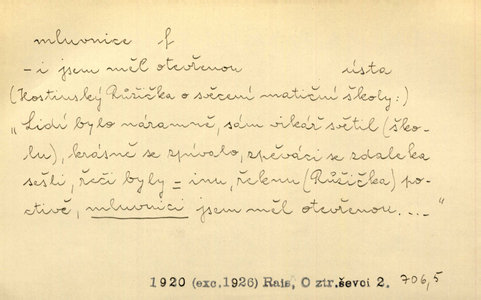 mluvnice f
- i jsem měl otevřenou ústa
(Hostinský Růžička o svěcení matiční školy:)
"Lidí bylo náramně, sám vikář světil (ško-
lu), krásně se zpívalo, zpěváci se zdaleka
sešli, řeči byly = inu, řeknu (Růžička) po-
ctivě, mluvnici jsem měl otevřenou...."
1920 (exc.1926) Rais, O ztr.ševci 2. 706,5